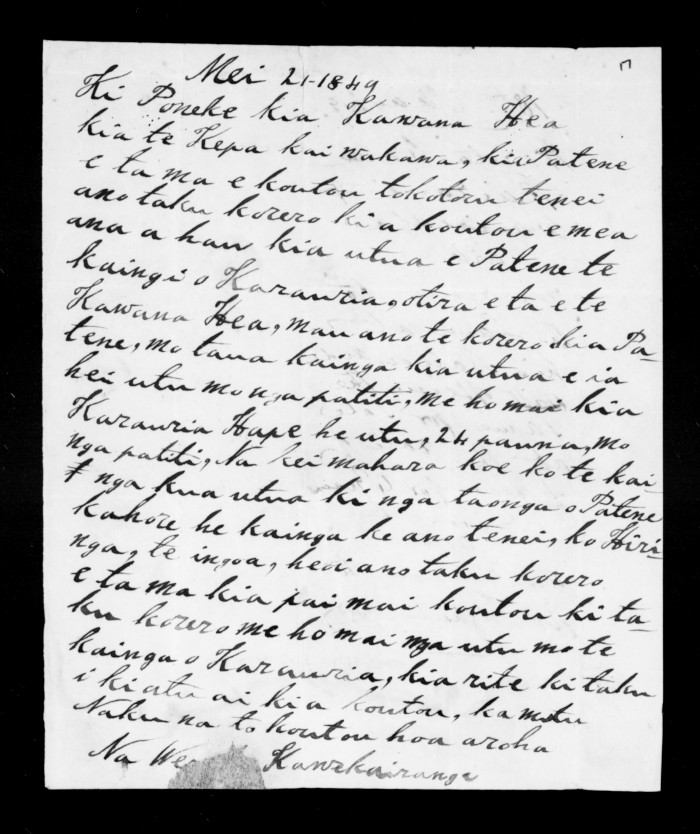 Mei 21-1849
Ki Poneke kia Kawana Hea
kia te Kepa kai wakawa, kia Patene
e ta ma e koutou tokotoru tenei
ano taku korero ki a koutou e mea
ana a hau kia utua e Patene te
kaingi o Karauria, otira e ta e te
Kawana Hea, mau ano te korero kia Pa-
tene, mo taua kainga kia utua e ia
hei utu mo nga patiti, me ho mai kia
Karauria Hape he utu, 24 pauna, mo
nga patiti, Na kei mahara koe ko te kai-
nga kua utua ki nga taonga o Patene
kahore he kainga ke ano tenei, ko Hiri-
nga, te ingoa, heoi ano taku korero
e ta ma kia pai mai koutou ki ta-
ku korero me ho mai nga utu mo te
kainga o Karauria, kia rite ki taku
i ki atu ai ki a koutou, ka mutu
Naku na to koutou hoa aroha
Na We Kawekairange